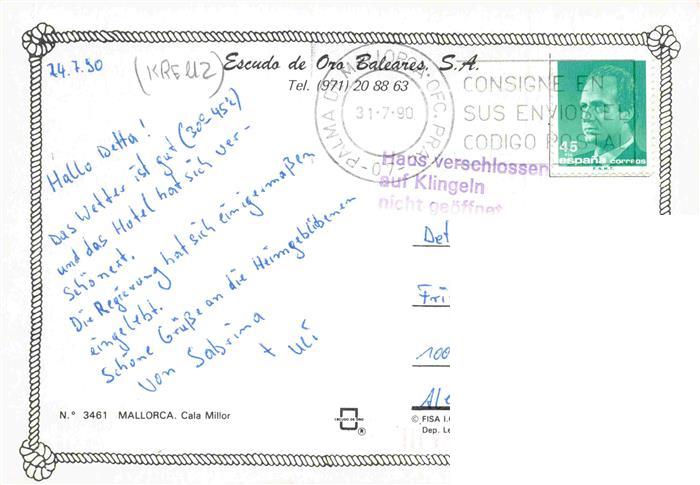 24.7.90
(KREUZ)
Escudo de Oro Baleares, S.A.
Tel. (971) 20 88 63
PALMA DE MALLORCA OFC. PRAL
31-7-90
CONSIGNE EN
SUS ENVIOS EL
CODIGO POSTAL
45
PTA
españa correos
F.N.M.T.
Haus verschlossen
auf Klingeln
nicht geöffnet
Hallo Detta!
Das Wetter ist gut (30°-45°C)
und das Hotel hat sich ver-
schönert.
Die Regierung hat sich einigermaßen
eingelebt.
Schöne Grüße an die Heimgebliebenen
von Sabrina
+ Uli
Det
Fri
100
Ale
N.° 3461 MALLORCA. Cala Millor
ESCUDO DE ORO
®
© FISA I.
Dep. Le